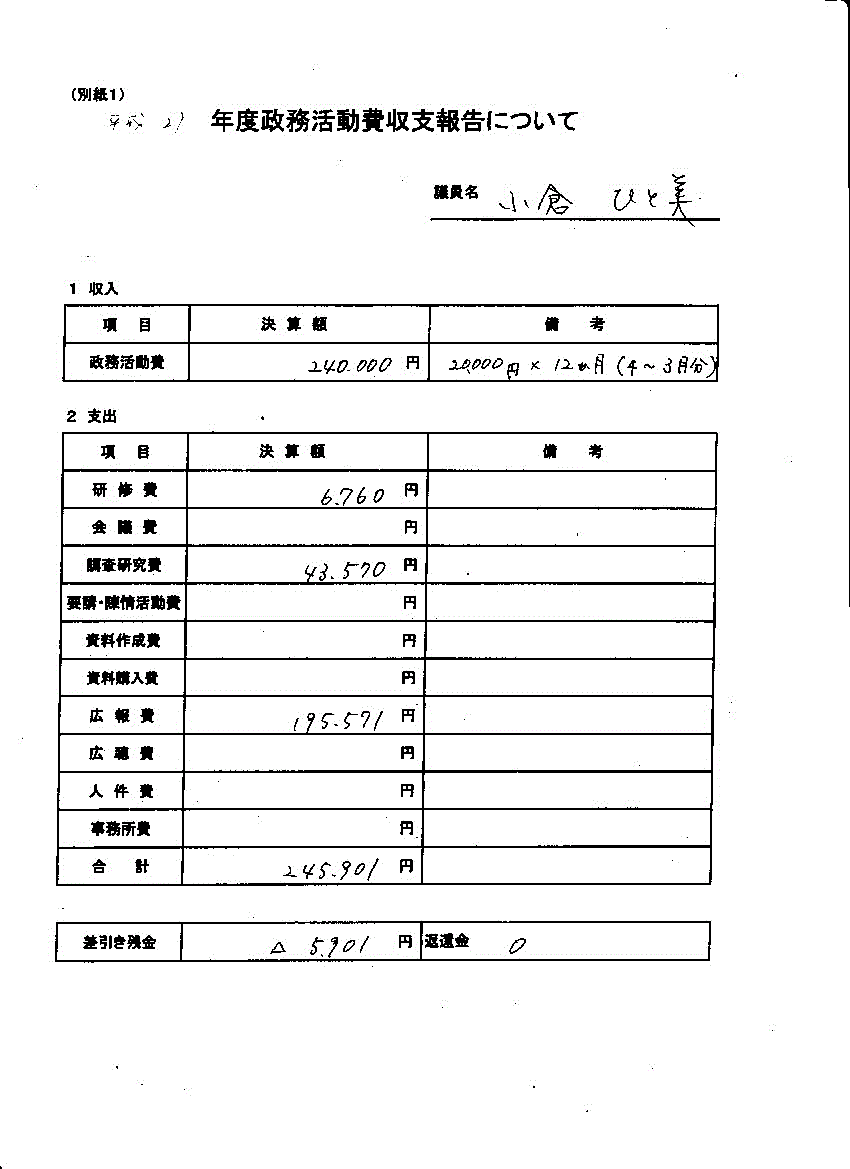 (別紙1)
平成 27 年度政務活動費収支報告について
議員名 小倉 ひと美
1 収入
項 目 決算額 備 考
政務活動費 240.000 円 20,000円 × 12か月 (4～3月分)
2 支出
項 目 決算額 備 考
研修費 6.760 円
会議費 円
調査研究費 43.570 円
要請・陳情活動費 円
資料作成費 円
資料購入費 円
広報費 195.571 円
広聴費 円
人件費 円
事務所費 円
合 計 245.901 円
差引き残金 △ 5.901 円 返還金 0